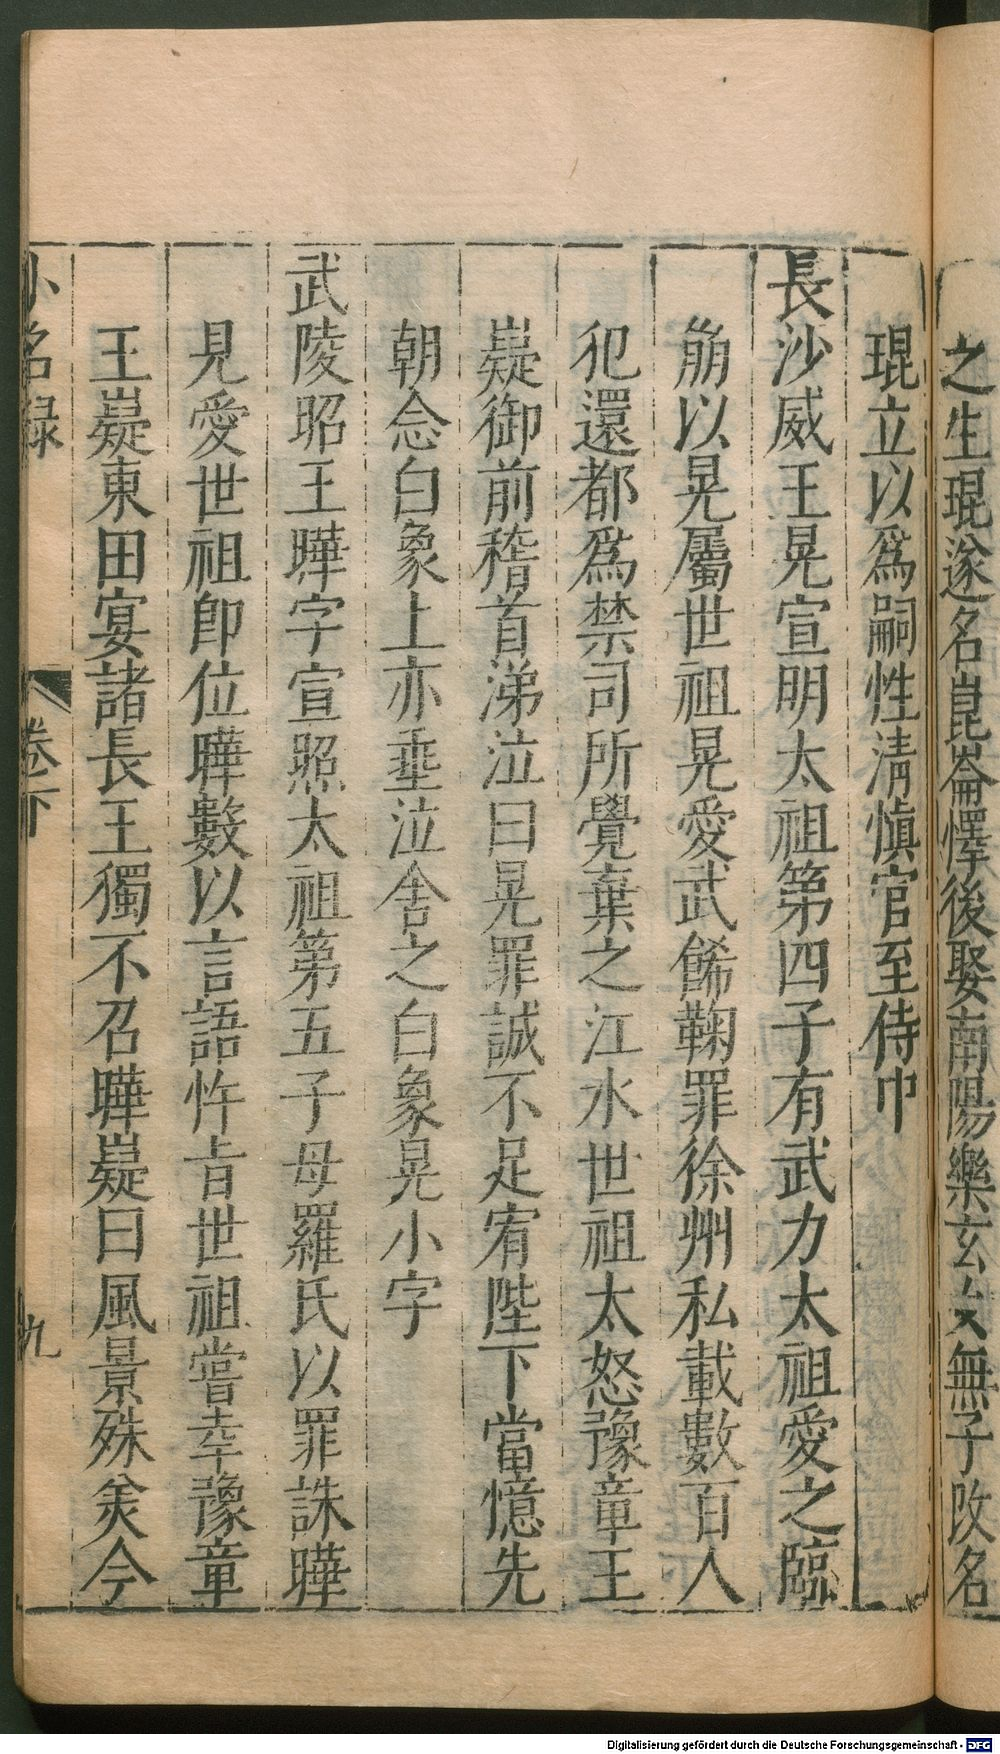 之生琨遂名崑崙懌後娶南陽樂玄女無子改名
琨立以爲嗣性淸愼官至侍中
長沙威王晃宣明太祖第四子有武力太祖愛之臨
崩以晃屬世祖晃愛武餙鞠罪徐州私載數百人
犯還都爲禁司所覺棄之江水世祖太怒豫章王
嶷御前稽首涕泣曰晃罪誠不足宥陛下當憶先
朝念白象上亦垂泣舍之白象晃小字
武陵昭王曄字宣照太祖第五子母羅氏以罪誅曄
見愛世祖卽位曄數以言語忤旨世祖嘗幸豫章
王嶷東田宴諸長王獨不召曄嶷曰風景殊美今
小名録
卷下
九
Digitalisierung gefördert durch die Deutsche Forschungsgemeinschaft - DFG